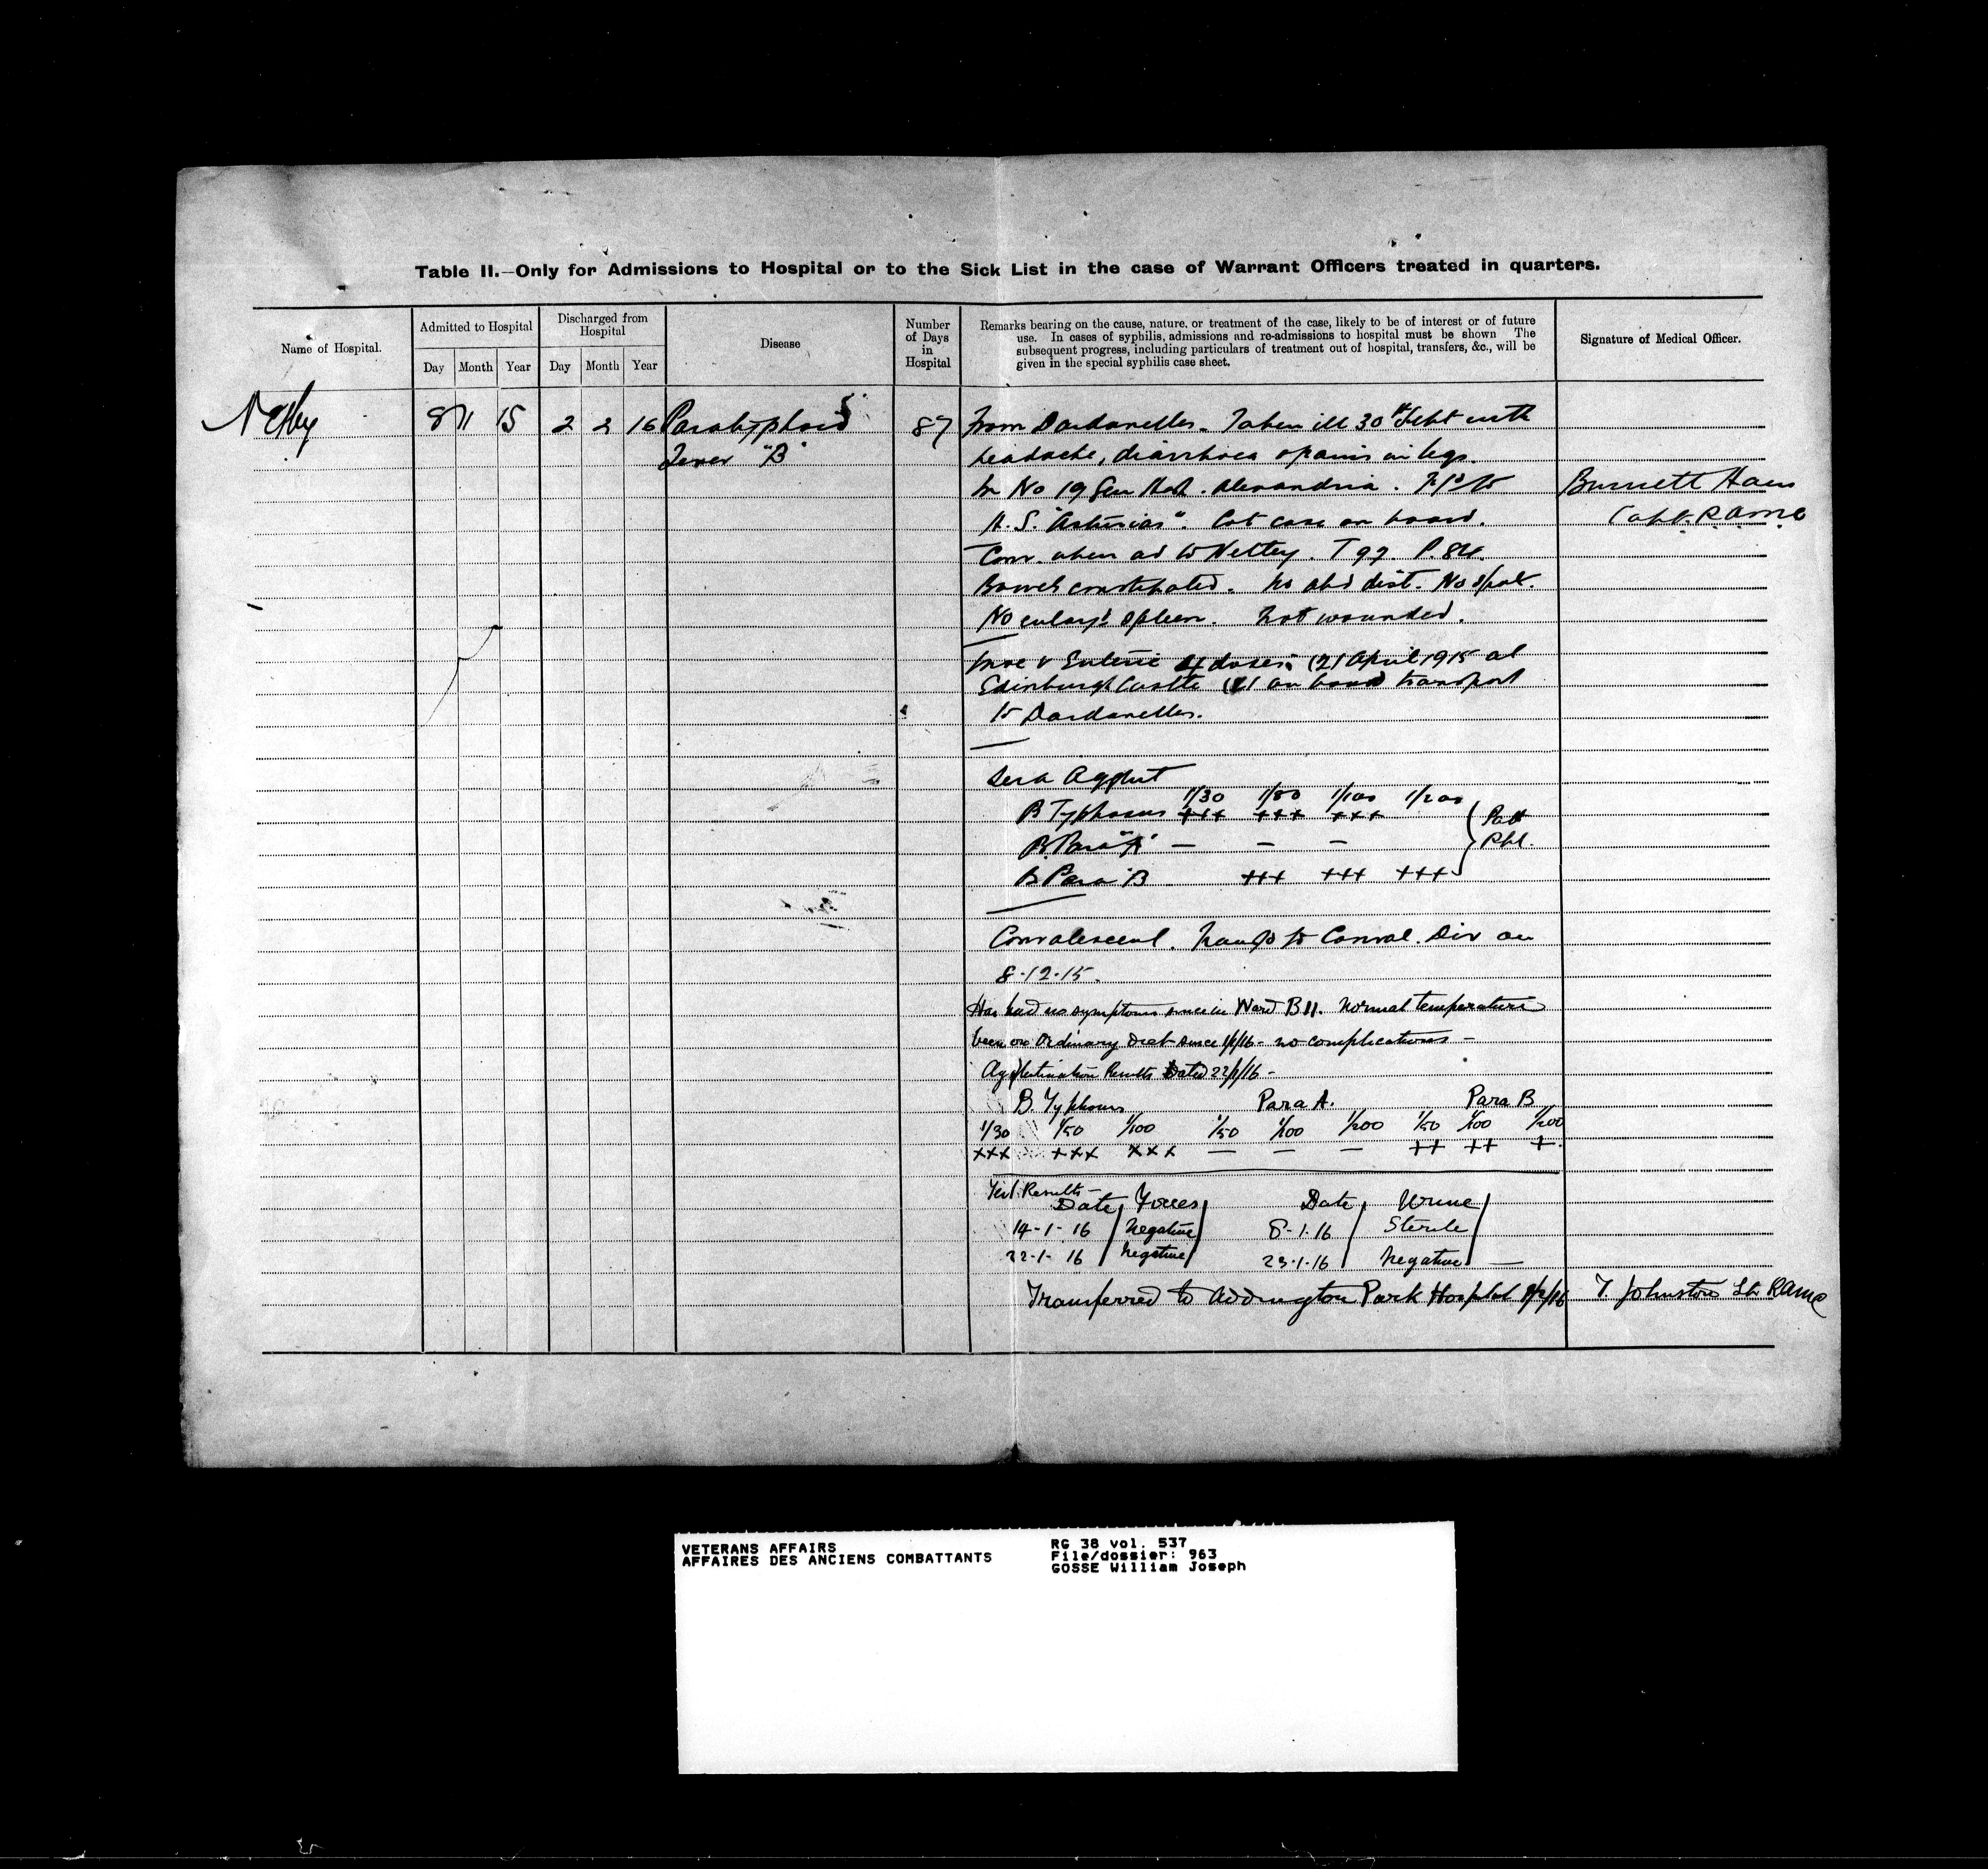 Table II.—Only for Admissions to Hospital or to the Sick List in the case of Warrant Officers treated in quarters.
Name of Hospital.
Admitted to Hospital
Discharged from Hospital
Disease
Number of Days in Hospital
Remarks bearing on the cause, nature, or treatment of the case, likely to be of interest or of future
use. In cases of syphilis, admissions and re-admissions to hospital must be shown The
subsequent progress, including particulars of treatment out of hospital, transfers, &c., will be
given in the special syphilis case sheet.
Signature of Medical Officer.
Day Month Year Day Month Year
Netley 8 11 15 2 2 16 Paratyphoid 87 From Dardanelles. Taken ill 30th Sept with
Fever "B" headache, diarrhoea & pains in legs.
In No 19 Gen Hosp. Alexandria. to
H.S. "Asturias". Cot case on board.
Burnett Ham
Capt. RAMC
Conv. when ad to Netley. T 97. P. 84.
Bowels constipated. No abd dist. No spots.
No enlargd spleen. Not wounded.
Inoc v Enteric 4 doses (2) April 1915 at
Edinburgh Castle (2) on board transport
to Dardanelles.
Sera Agglut
1/30 1/50 1/100 1/200
B Typhosus +++ +++ +++
B. Para "A" — — —
B Para B +++ +++ +++
Convalescent. Transfd to Conval. Div on
8.12.15.
Has had no symptoms since in Ward B11. Normal temperature
been on Ordinary Diet since 1/1/16 - no complications -
Agglutination Results Dated 22/1/16 -
B. Typhosus Para A. Para B
1/30 1/50 1/100 1/50 1/100 1/200 1/50 1/100 1/200
xxx +++ xxx — — — ++ ++ +
Results - Date Foeces Date Urine
14-1-16 Negative 8-1-16 Sterile
22-1-16 Negative 23-1-16 Negative —
Transferred to Addington Park Hospital 2/2/16 T. Johnston Lt RAMC
VETERANS AFFAIRS
AFFAIRES DES ANCIENS COMBATTANTS
RG 38 vol. 537
File/dossier: 963
GOSSE William Joseph